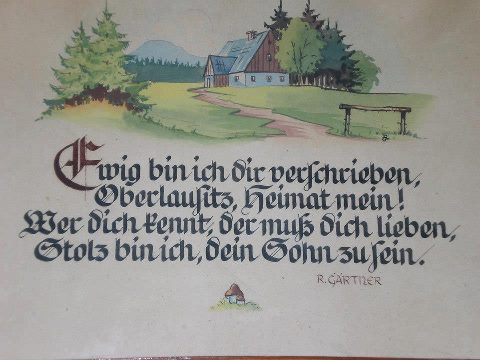 Ewig bin ich dir verschrieben,
Oberlausitz, Heimat mein!
Wer dich kennt, der muß dich lieben,
Stolz bin ich, dein Sohn zu sein.
R. GÄRTNER